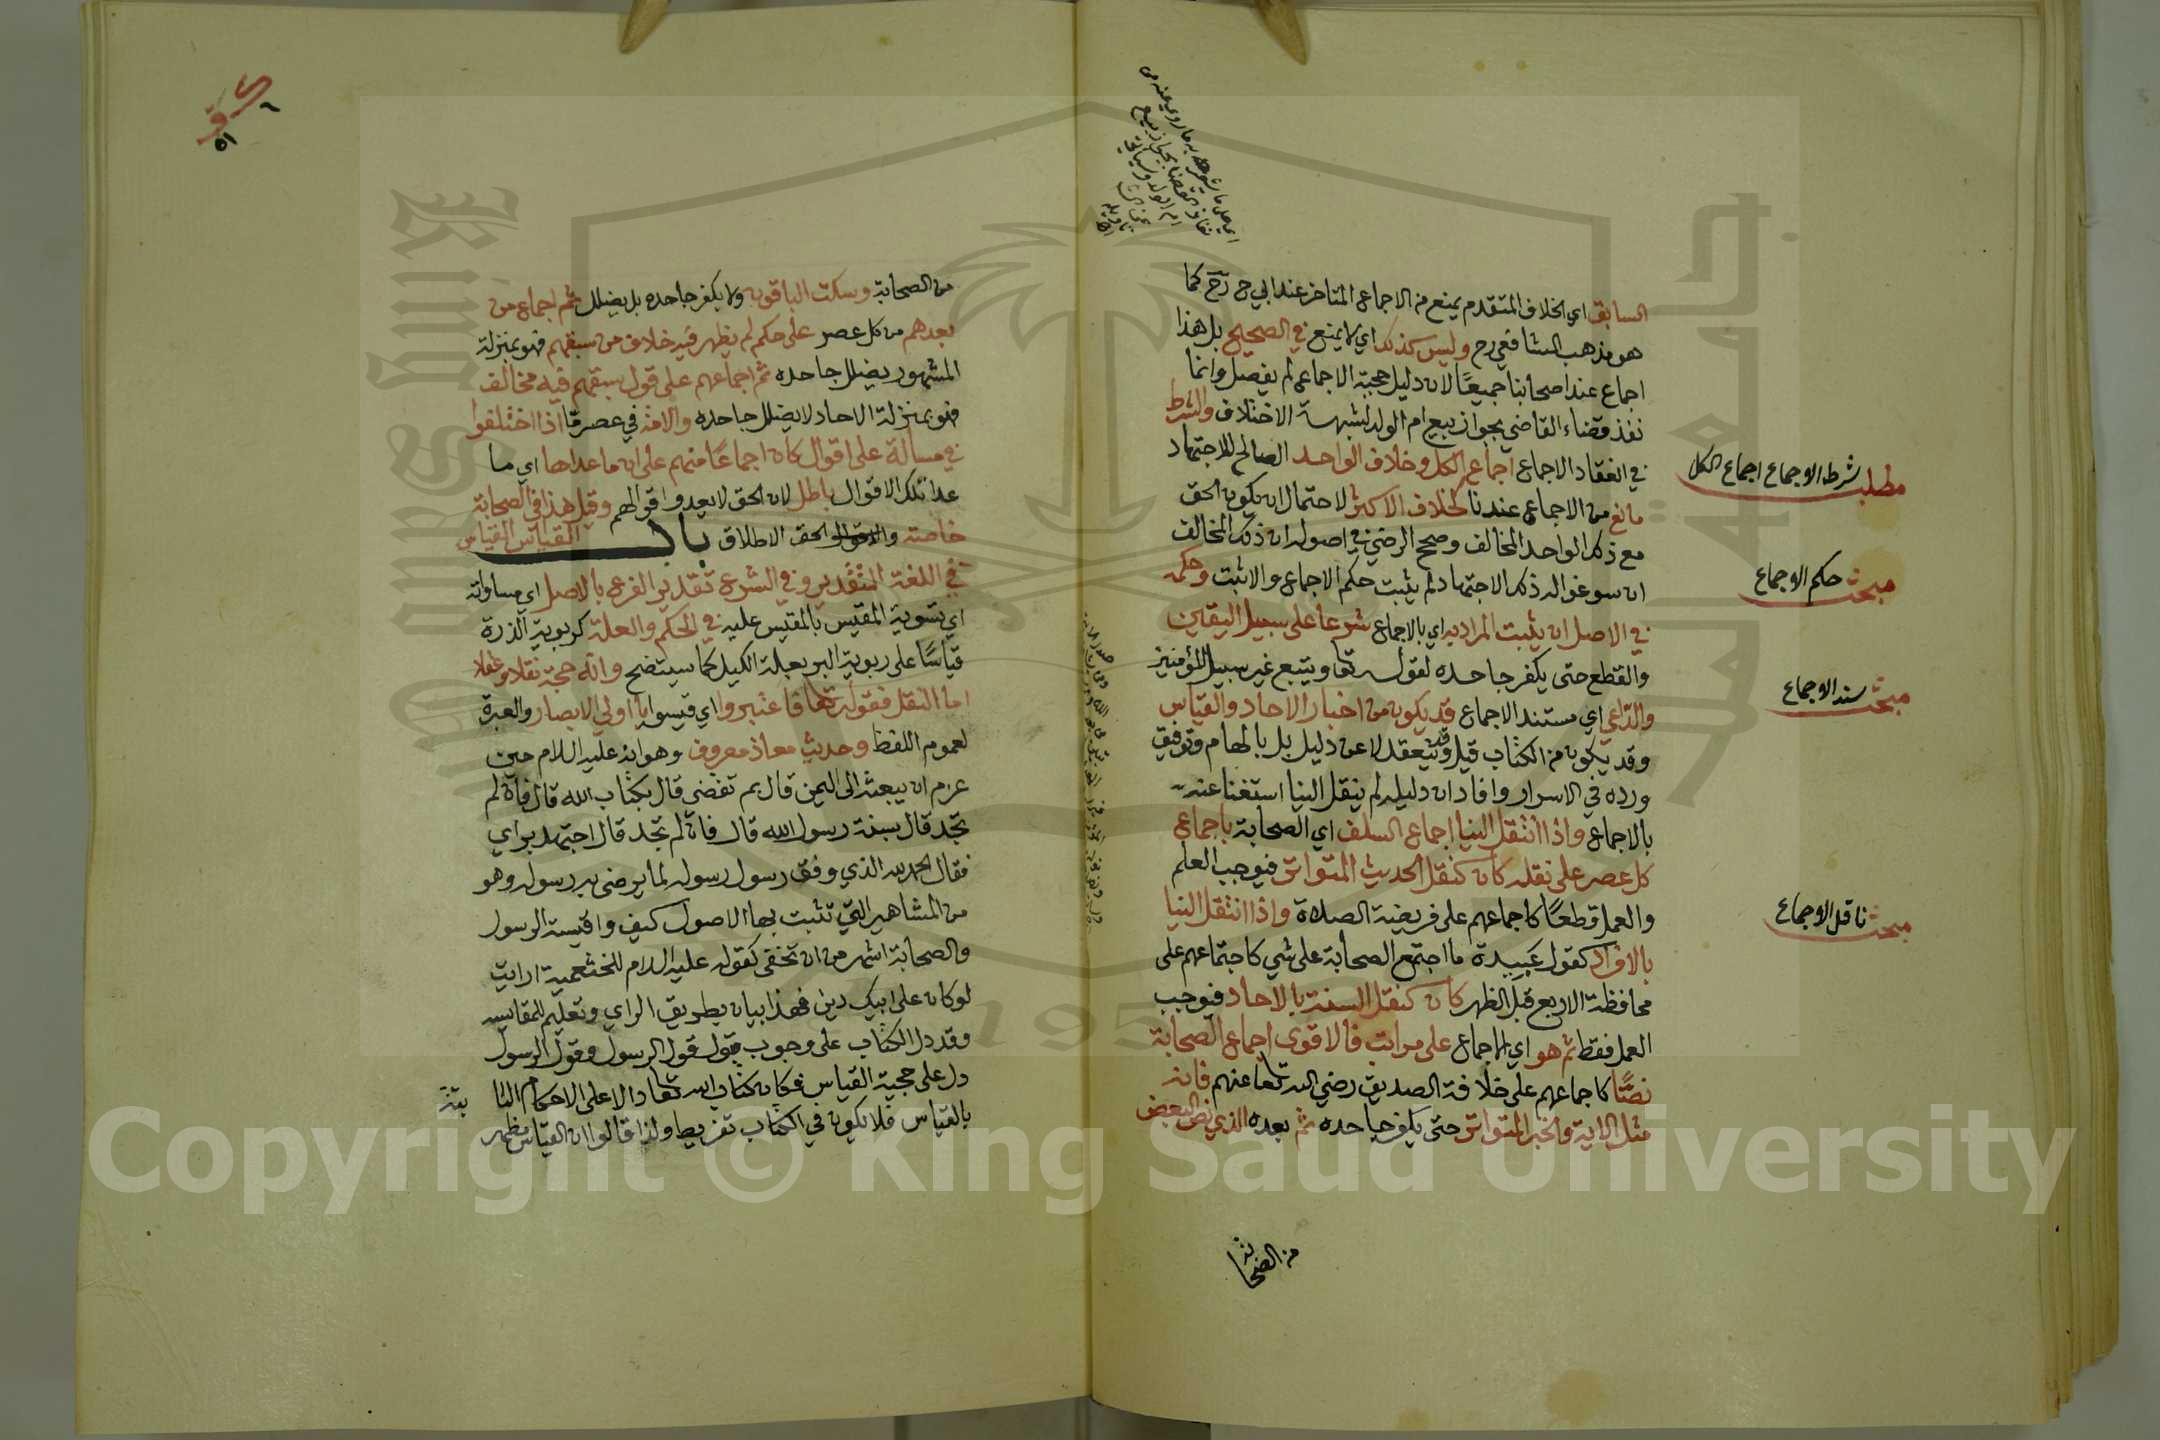 السابق اي الخلاف المتقدم يمنع من الاجماع المتاخر عند ابي ح رح كما
هو مذهب الشافعي رح وليس كذلك اي لا يمنع في الصحيح بل هذا
اجماع عند اصحابنا جميعًا لان دليل حجية الاجماع لم يفصل وانما
نفذ قضاء القاضي بجواز بيع ام الولد لشبهة الاختلاف والشرط
في انعقاد الاجماع اجماع الكل وخلاف الواحد الصالح للاجتهاد
مانع من الاجماع عندنا كخلاف الاكثر لاحتمال ان يكون الحق
مع ذلك الواحد المخالف وصحح الرضي في اصوله ان ذلك المخالف
ان سوغوا له ذلك الاجتهاد لم يثبت حكم الاجماع والا ثبت وحكمه
في الاصل ان يثبت المراد به اي بالاجماع شرعا على سبيل اليقين
والقطع حتى يكفر جاحده لقوله تعا ويتبع غير سبيل المؤمنين
والداعي اي مستند الاجماع قد يكون من اخبار الاحاد والقياس
وقد يكون من الكتاب قيل وقد ينعقد لا عن دليل بل بالهام وتوفيق
ورده في الاسرار وافاد ان دليله لم ينقل الينا استغنا عنه
بالاجماع واذا انتقل الينا اجماع السلف اي الصحابة باجماع
كل عصر على نقله كان كنقل الحديث المتواتر فيوجب العلم
والعمل قطعًا كاجماعهم على فريضة الصلاة واذا انتقل الينا
بالافراد كقول عبيدة ما اجتمع الصحابة على شي كاجتماعهم على
محافظة الاربع قبل الظهر كان كنقل السنة بالاحاد فيوجب
العمل فقط ثم هو اي الاجماع على مراتب فالاقوى اجماع الصحابة
نصًّا كاجماعهم على خلافة الصديق رضي الله تعا عنهم فانه
مثل الاية والخبر المتواتر حتى يكفر جاحده ثم بعده الذي نص البعض
من الصحابة
مطلب شرط الاجماع اجماع الكل
مبحث حكم الاجماع
مبحث سند الاجماع
مبحث ناقل الاجماع
من الصحابة وسكت الباقون ولا يكفر جاحده بل يضلل ثم اجماع من
بعدهم من كل عصر على حكم لم يظهر فيه خلاف من سبقهم فهو بمنزلة
المشهور يضلل جاحده ثم اجماعهم على قول سبقهم فيه مخالف
فهو بمنزلة الاحاد لا يضلل جاحده والامة في عصر ما اذا اختلفوا
في مسالة على اقوال كان اجماعًا منهم على ان ما عداها اي ما
عدا تلك الاقوال باطل لان الحق لا يعدوا قوالهم وقيل هذا في الصحابة
خاصة والحق الاطلاق باب القياس القياس
في اللغة التقدير وفي الشرع تقدير الفرع بالاصل اي مساواته
اي تسوية المقيس بالمقيس عليه في الحكم والعلة كربوية الذرة
قياسًا على ربوية البر بعلة الكيل كما سيتضح وانه حجة نقلا وعقلا
اما النقل فقوله تعا فاعتبروا اي قيسوا يا اولي الابصار والعبرة
لعموم اللفظ وحديث معاذ معروف وهو انه عليه السلام حين
عزم ان يبعثه الى اليمن قال بم تقضي قال بكتاب الله قال فان لم
تجد قال بسنة رسول الله قال فان لم تجد قال اجتهد براي
فقال الحمد لله الذي وفق رسول رسوله لما يرضى به رسوله وهو
من المشاهير التي تثبت بها الاصول كيف واقيسة الرسول
والصحابة اشهر من ان تخفى كقوله عليه السلام للخثعمية ارايت
لو كان على ابيك دين فهذا بيان بطريق الراي وتعليم للمقايسه
وقد دل الكتاب على وجوب قبول قول الرسول وقول الرسول
دل على حجية القياس فكان كتاب الله تعا دالا على الاحكام الثا بتة
بالقياس فلا يكون في الكتاب تفريط ولذا قالوا ان القياس مظهر
٥١
Copyright © King Saud University